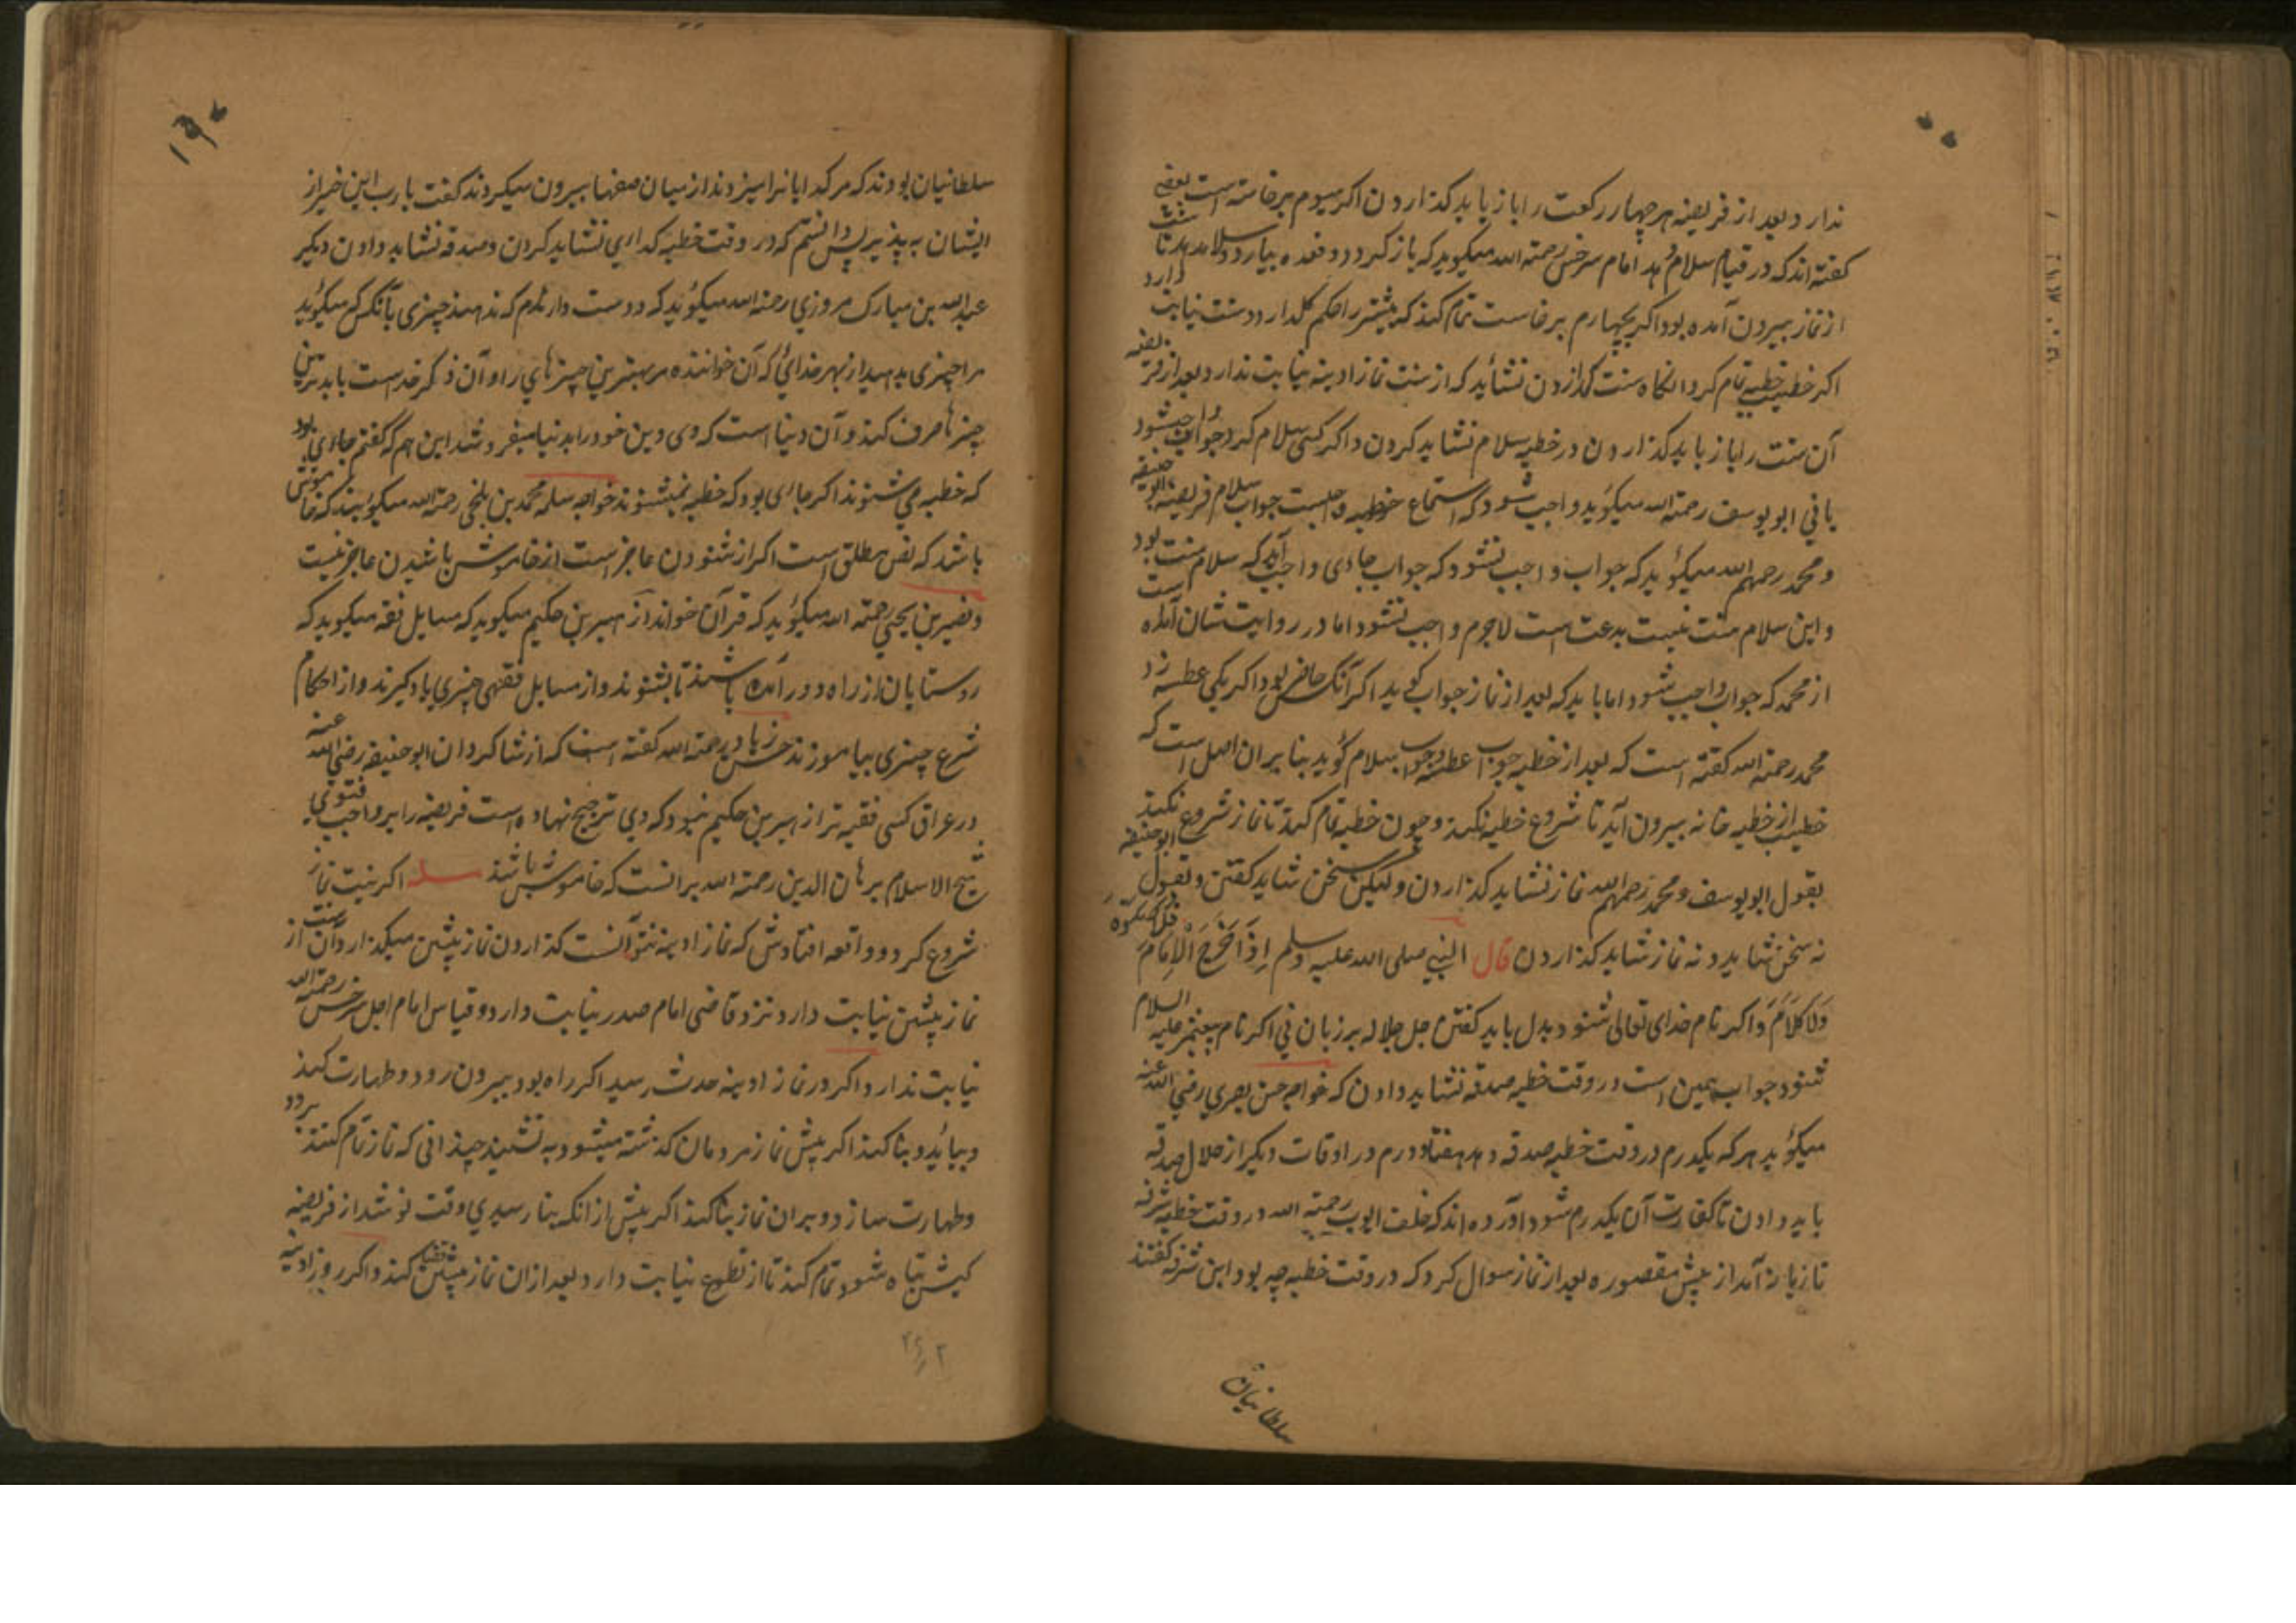 ندارد و بعد از فریضه هر چهار رکعت را باز باید کذاردن اکر سیوم برخاسته است بعضی
کفته اند که در قیام سلام دهد امام سرخسی رحمته الله میکوید که باز کردد و قعده بیارد و سلام دهد تا
از نماز بیرون آمده بود اکر بچهارم برخاست تمام کند که بیشتر را حکم کل دارد و سنت نیابت دارد
اکر خطیب خطبه تمام کرد انکاه سنت کذاردن نشاید که از سنت نماز ادینه نیابت ندارد و بعد از فریضه
آن سنت را باز باید کذاردن در خطبه سلام نشاید کردن و اکر کسی سلام کرد جواب واجب شود
یا نی ابو یوسف رحمته الله میکوید واجب شود که استماع خطبه واجبست جواب سلام فریضه ابو حنیفه
و محمد رحمهم الله میکوید که جواب واجب نشود که جواب جای واجب آید که سلام سنت بود
و این سلام سنت نیست بدعت است لاجرم واجب نشود اما در روایت شان آمده است
از محمد که جواب واجب شود اما باید که بعد از نماز جواب کوید اکر آنکس حاضر بود اکر یکی عطسه زد
محمد رحمته الله کفته است که بعد از خطبه جواب عطسه و جواب سلام کوید بنا بر ان اصل است که
خطیب از خطبه خانه بیرون آید تا شروع خطبه نکند و چون خطبه تمام کند تا نماز شروع نکند
بقول ابو یوسف و محمد رحمهم الله نماز نشاید کذاردن ولیکن سخن شاید کفتن و بقول ابو حنیفه
نه سخن شاید و نه نماز شاید کذاردن قال النبی صلی الله علیه وسلم اِذَا خَرَجَ الْاِمَامُ فَلَا صَلٰوةَ
وَلَا کَلَامَ و اکر نام خدای تعالی شنود بدل باید کفتن جل جلاله بر زبان نی اکر نام پیغمبر علیه السلام
شنود جواب همین است در وقت خطبه صدقه نشاید دادن که خواجه حسن بصری رضی الله عنه
میکوید هر که یکدرم در وقت خطبه صدقه دهد هفتاد درم در اوقات دیکر از حلال صدقه
باید دادن تا کفارت آن یکدرم شود آورده اند که خلف ایوب رحمته الله در وقت خطبه شرفه
تازیانه آمد از پیش مقصوره بعد از نماز سوال کرد که در وقت خطبه چه بود این شرفه کفتند
سلطانیان
سلطانیان بودند که مر کدایانرا میزدند از میان صفها بیرون میکردند کفت یا رب این خیر از
ایشان به پذیر پس دانستم که در وقت خطبه کدایی نشاید کردن و صدقه نشاید دادن دیکر
عبدالله بن مبارک مروزی رحمته الله میکوید که دوست دارندم که ندهند چیزی بآنکس که میکوید
مرا چیزی بدهید از بهر خدای که آن خواننده مر بهترین چیزهای را و آن ذکر خداست با بدترین
چیزها صرف کند و آن دنیا است که وی دین خود را بدنیا میفروشد این هم که کفتم جای بود
که خطبه می شنوند اکر جای بود که خطبه نمیشنوند خواجه سلمه محمد بن بلخی رحمته الله میکویند که خاموش
باشد که نص مطلق است اکر از شنودن عاجز است از خاموش باشیدن عاجز نیست
و نصیر بن یحیی رحمته الله میکوید که قرآن خواند از هیر بن حکیم میکوید که مسایل فقه میکوید که
روستایان از راه دور آمده باشند تا بشنوند و از مسایل فقهی چیزی یاد کیرند و از احکام
شرع چیزی بیاموزند حسن زیاد رحمته الله کفته است که از شاکردان ابو حنیفه رضی الله عنه
در عراق کسی فقیه تر از هیر بن حکیم نبود که وی ترجیح نهاده است فریضه را بر واجب فتوی
شیخ الاسلام برهان الدین رحمته الله برانست که خاموش باشند مسله اکر نیت نماز
شروع کرد و واقعه افتادش که نماز ادینه نتوانست کذاردن نماز پیشین میکذارد آن نیت از
نماز پیشین نیابت دارد نزد قاضی امام صدر نیابت دارد و قیاس امام اجل سرخسی رحمته الله
نیابت ندارد و اکر در نماز ادینه حدث رسید اکر راه بود بیرون رود و طهارت کند
و بیاید و بنا کند اکر پیش نماز مردمان کذشته میشود به نشیند چندانی که نماز تمام کنند برود
و طهارت سازد و بران نماز بنا کند اکر پیش از انکه بنا رسیدی وقت نو شد از فریضه
کیش تباه شود تمام کند تا از تطوع نیابت دارد و بعد از ان نماز پیشین قضا کند و اکر روز ادینه